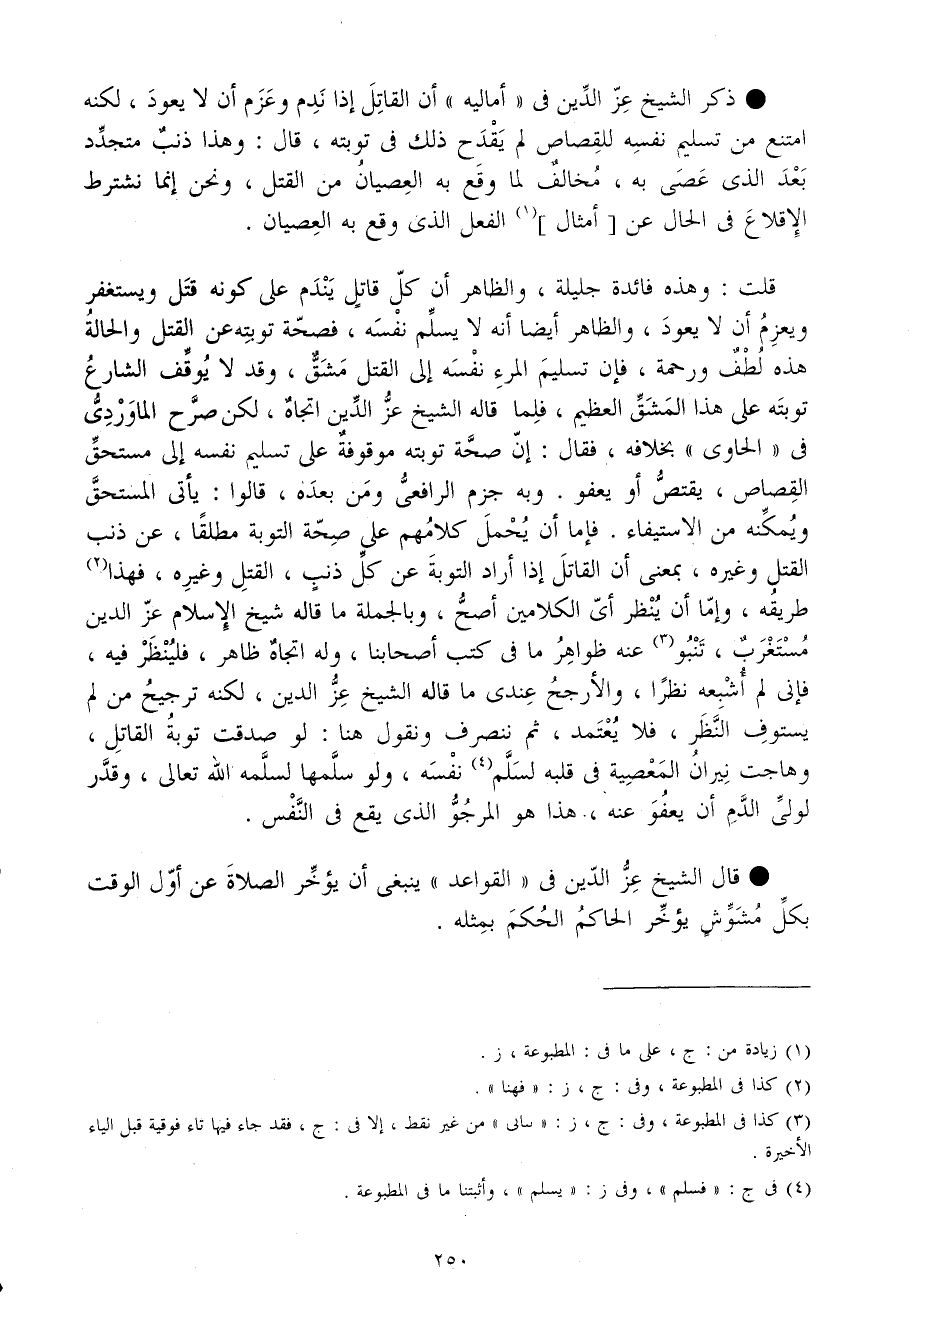 ● ذكر الشيخ عِزّ الدِّين فى « أماليه » أن القاتِلَ إذا نَدِم وعَزَم أن لا يعودَ ، لكنه
امتنع من تسليم نفسِه للقِصاص لم يَقْدَح ذلك فى توبته ، قال : وهذا ذنبٌ متجدِّد
بَعْدَ الذى عَصَى به ، مُخالفٌ لما وقَع به العِصيانُ من القتل ، ونحن إنما نشترط
الإِقلاعَ فى الحال عن [ أمثال ](١) الفعل الذى وقع به العِصيان .
قلت : وهذه فائدة جليلة ، والظاهر أن كلّ قاتلٍ يَنْدَم على كونه قتَل ويستغفر
ويعزِمُ أن لا يعودَ ، والظاهر أيضا أنه لا يسلِّم نفْسَه ، فصحّة توبتِه عن القتل والحالةُ
هذه لُطْفٌ ورحمة ، فإن تسليمَ المرءِ نفْسَه إلى القتل مَشَقٌّ ، وقد لا يُوقِّف الشارعُ
توبتَه على هذا المَشَقِّ العظيم ، فلِما قاله الشيخ عزُّ الدِّين اتجاهٌ ، لكن صرَّح الماوَرْدِىُّ
فى « الحاوى » بخلافه ، فقال : إنّ صحَّة توبته موقوفةٌ على تسليم نفسه إلى مستحقِّ
القِصاص ، يقتصُّ أو يعفو . وبه جزم الرافعىُّ ومَن بعدَه ، قالوا : يأتى المستحقَّ
ويُمكِّنه من الاستيفاء . فإما أن يُحْملَ كلامُهم على صِحّة التوبة مطلقًا ، عن ذنب
القتلِ وغيرِه ، بمعنى أن القاتلَ إذا أراد التوبةَ عن كلِّ ذنبٍ ، القتلِ وغيرِه ، فهذا(٢)
طريقُه ، وإمّا أن يُنْظر أىّ الكلامين أصحُّ ، وبالجملة ما قاله شيخ الإِسلام عزّ الدين
مُسْتَغْرَبٌ ، تَنْبُو(٣) عنه ظواهِرُ ما فى كتب أصحابنا ، وله اتجاهٌ ظاهر ، فليُنْظَرْ فيه ،
فإنى لم أُشْبِعه نظرًا ، والأرجحُ عِندى ما قاله الشيخ عِزُّ الدين ، لكنه ترجيحُ من لم
يستوفِ النَّظَر ، فلا يُعْتَمد ، ثم ننصرف ونقول هنا : لو صدقت توبةُ القاتلِ ،
وهاجت نِيرانُ المَعْصية فى قلبه لسَلَّم(٤) نفْسَه ، ولو سلَّمها لسلَّمه اللّٰه تعالى ، وقدَّر
لولىِّ الدَّمِ أن يعفُوَ عنه ، هذا هو المرجُوُّ الذى يقع فى النَّفْس .
● قال الشيخ عِزُّ الدّين فى « القواعد » ينبغى أن يؤخِّر الصلاةَ عن أوّل الوقت
بكلِّ مُشَوِّشٍ يؤخِّر الحاكمُ الحُكمَ بمِثله .
(١) زيادة من : ج ، على ما فى : المطبوعة ، ز .
(٢) كذا فى المطبوعة ، وفى : ج ، ز : « فهنا » .
(٣) كذا فى المطبوعة ، وفى : ج ، ز : من غير نقط ، إلا فى : ج ، فقد جاء فيها تاء فوقية قبل الياء
الأخيرة .
(٤) فى ج : « فسلم » ، وفى ز : « يسلم » ، وأثبتنا ما فى المطبوعة .
٢٥٠